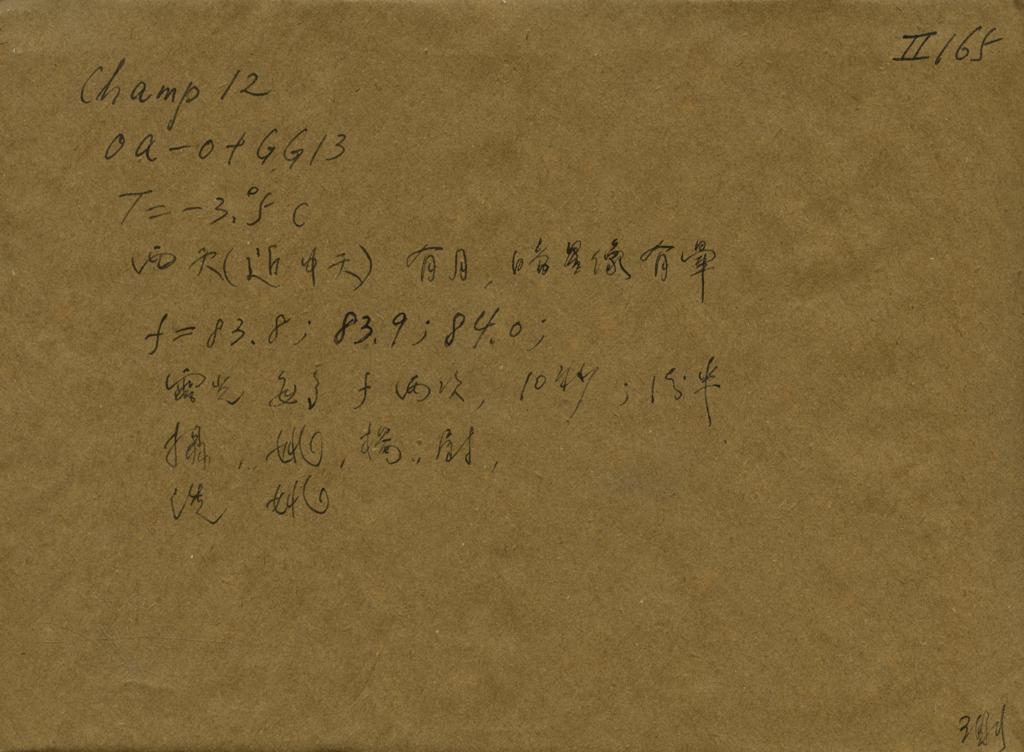 II 165
Champ 12
Oa-O+GG13
T=-3.°5 C
西天(近中天) 有月, 暗星像有暈
f=83.8; 83.9; 84.0;
露光 每 f 两次, 10秒; 1分半
攝, 姚, 楊, 尉,
洗 姚